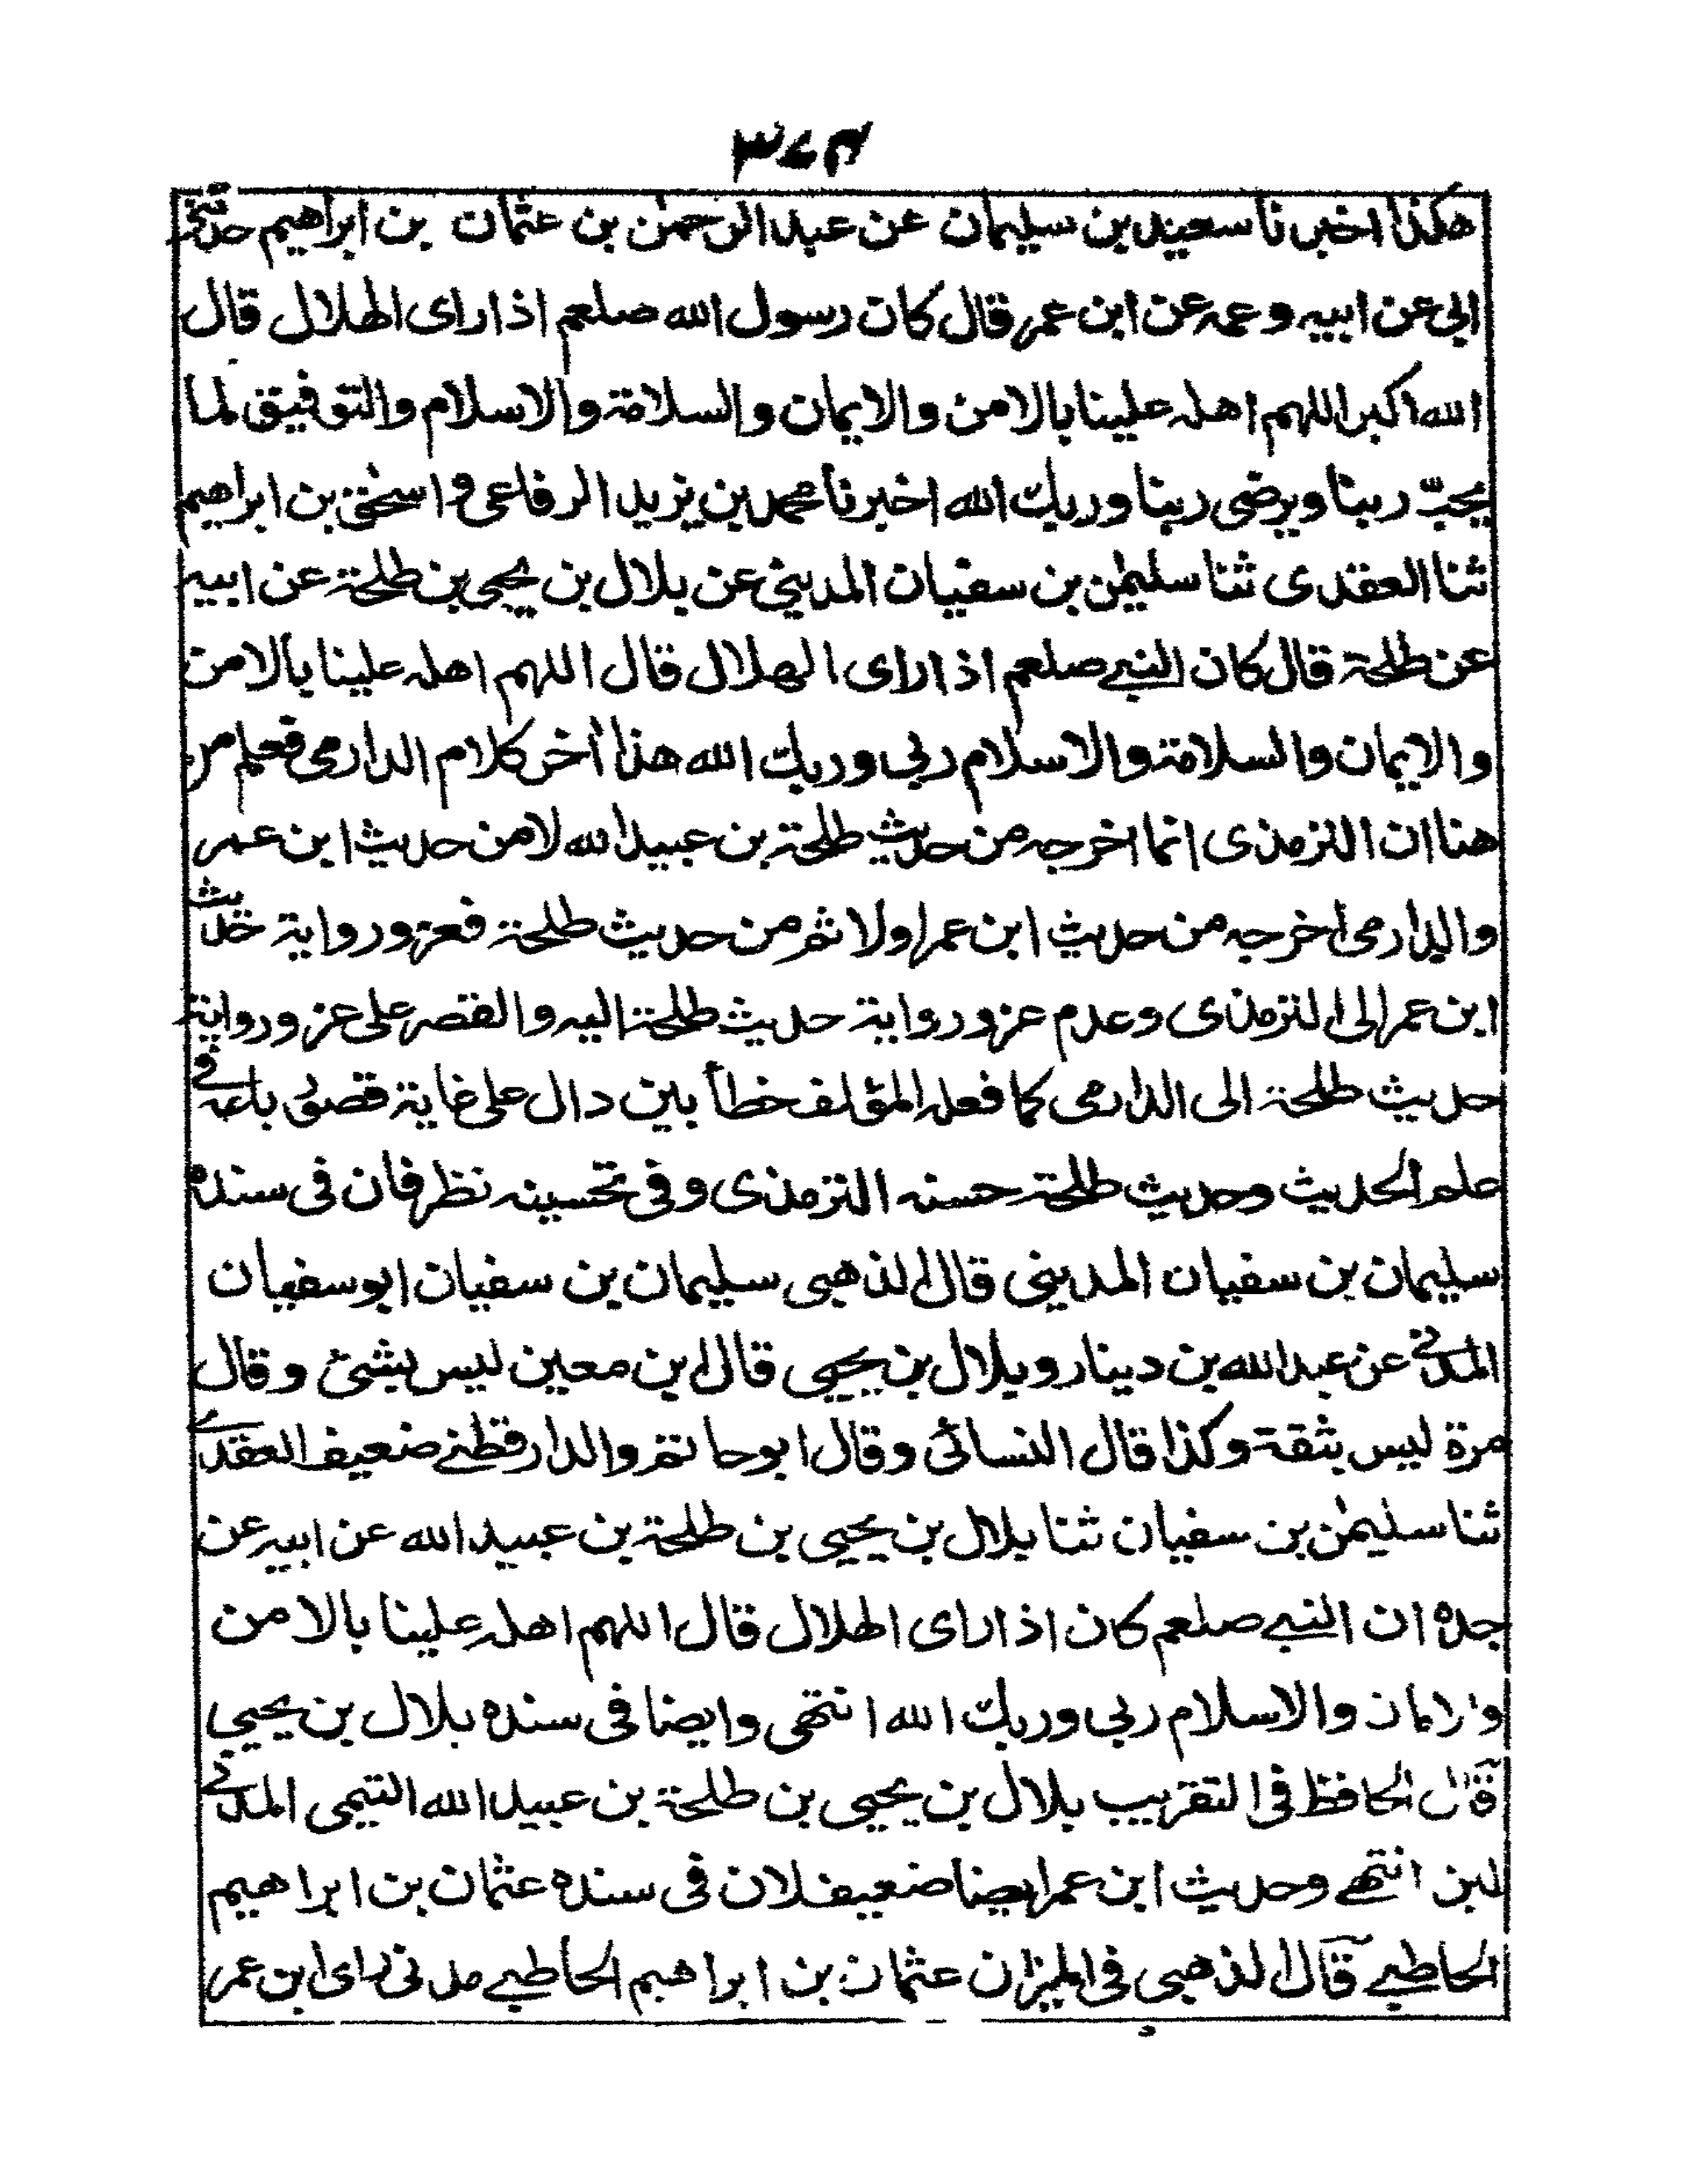 ٣٧٣
هكذا اخبرنا سعيد بن سليمان عن عبد الرحمن بن عثمان بن ابراهيم حدثني
ابي عن ابيه وعمه عن ابن عمر قال كان رسول الله صلعم اذا راى الهلال قال
الله اكبر اللهم اهله علينا بالامن والايمان والسلامة والاسلام والتوفيق لما
يحبّ ربنا ويرضى ربنا وربك الله اخبرنا محمد بن يزيد الرفاعى و اسحٰق بن ابراهيم
ثنا العقدى ثنا سليمٰن بن سفيان المدينى عن بلال بن يحيى بن طلحة عن ابيه
عن طلحة قال كان النبى صلعم اذا راى الهلال قال اللهم اهله علينا بالامن
والايمان والسلامة والاسلام ربى وربك الله هذا اٰخر كلام الدارمى فعلم من
هنا ان الترمذى انما اخرجه من حديث طلحة بن عبيد الله لا من حديث ابن عمر
والدارمى اخرجه من حديث ابن عمر اولا ثم من حديث طلحة فعزو رواية حديث
ابن عمر الى الترمذى وعدم عزو رواية حديث طلحة اليه والقصر على عزو رواية
حديث طلحة الى الدارمى كما فعله المؤلف خطأ بين دال على غاية قصور باعه فى
علم الحديث وحديث طلحة حسنه الترمذى وفى تحسينه نظر فان فى سنده
سليمان بن سفيان المدينى قال الذهبى سليمان بن سفيان ابو سفيان
المدنى عن عبد الله بن دينار وبلال بن يحيى قال ابن معين ليس بشئ وقال
مرة ليس بثقة وكذا قال النسائى وقال ابو حاتم والدارقطنى ضعيف العقدى
ثنا سليمٰن بن سفيان ثنا بلال بن يحيى بن طلحة بن عبيد الله عن ابيه عن
جده ان النبى صلعم كان اذا راى الهلال قال اللهم اهله علينا بالامن
والايمان والاسلام ربى وربك الله انتهى وايضا فى سنده بلال بن يحيى
قال الحافظ فى التقريب بلال بن يحيى بن طلحة بن عبيد الله التيمى المدنى
لين انتهى وحديث ابن عمر ايضا ضعيف لان فى سنده عثمان بن ابراهيم
الحاطبى قال الذهبى فى الميزان عثمان بن ابراهيم الحاطبى مدنى راى ابن عمر